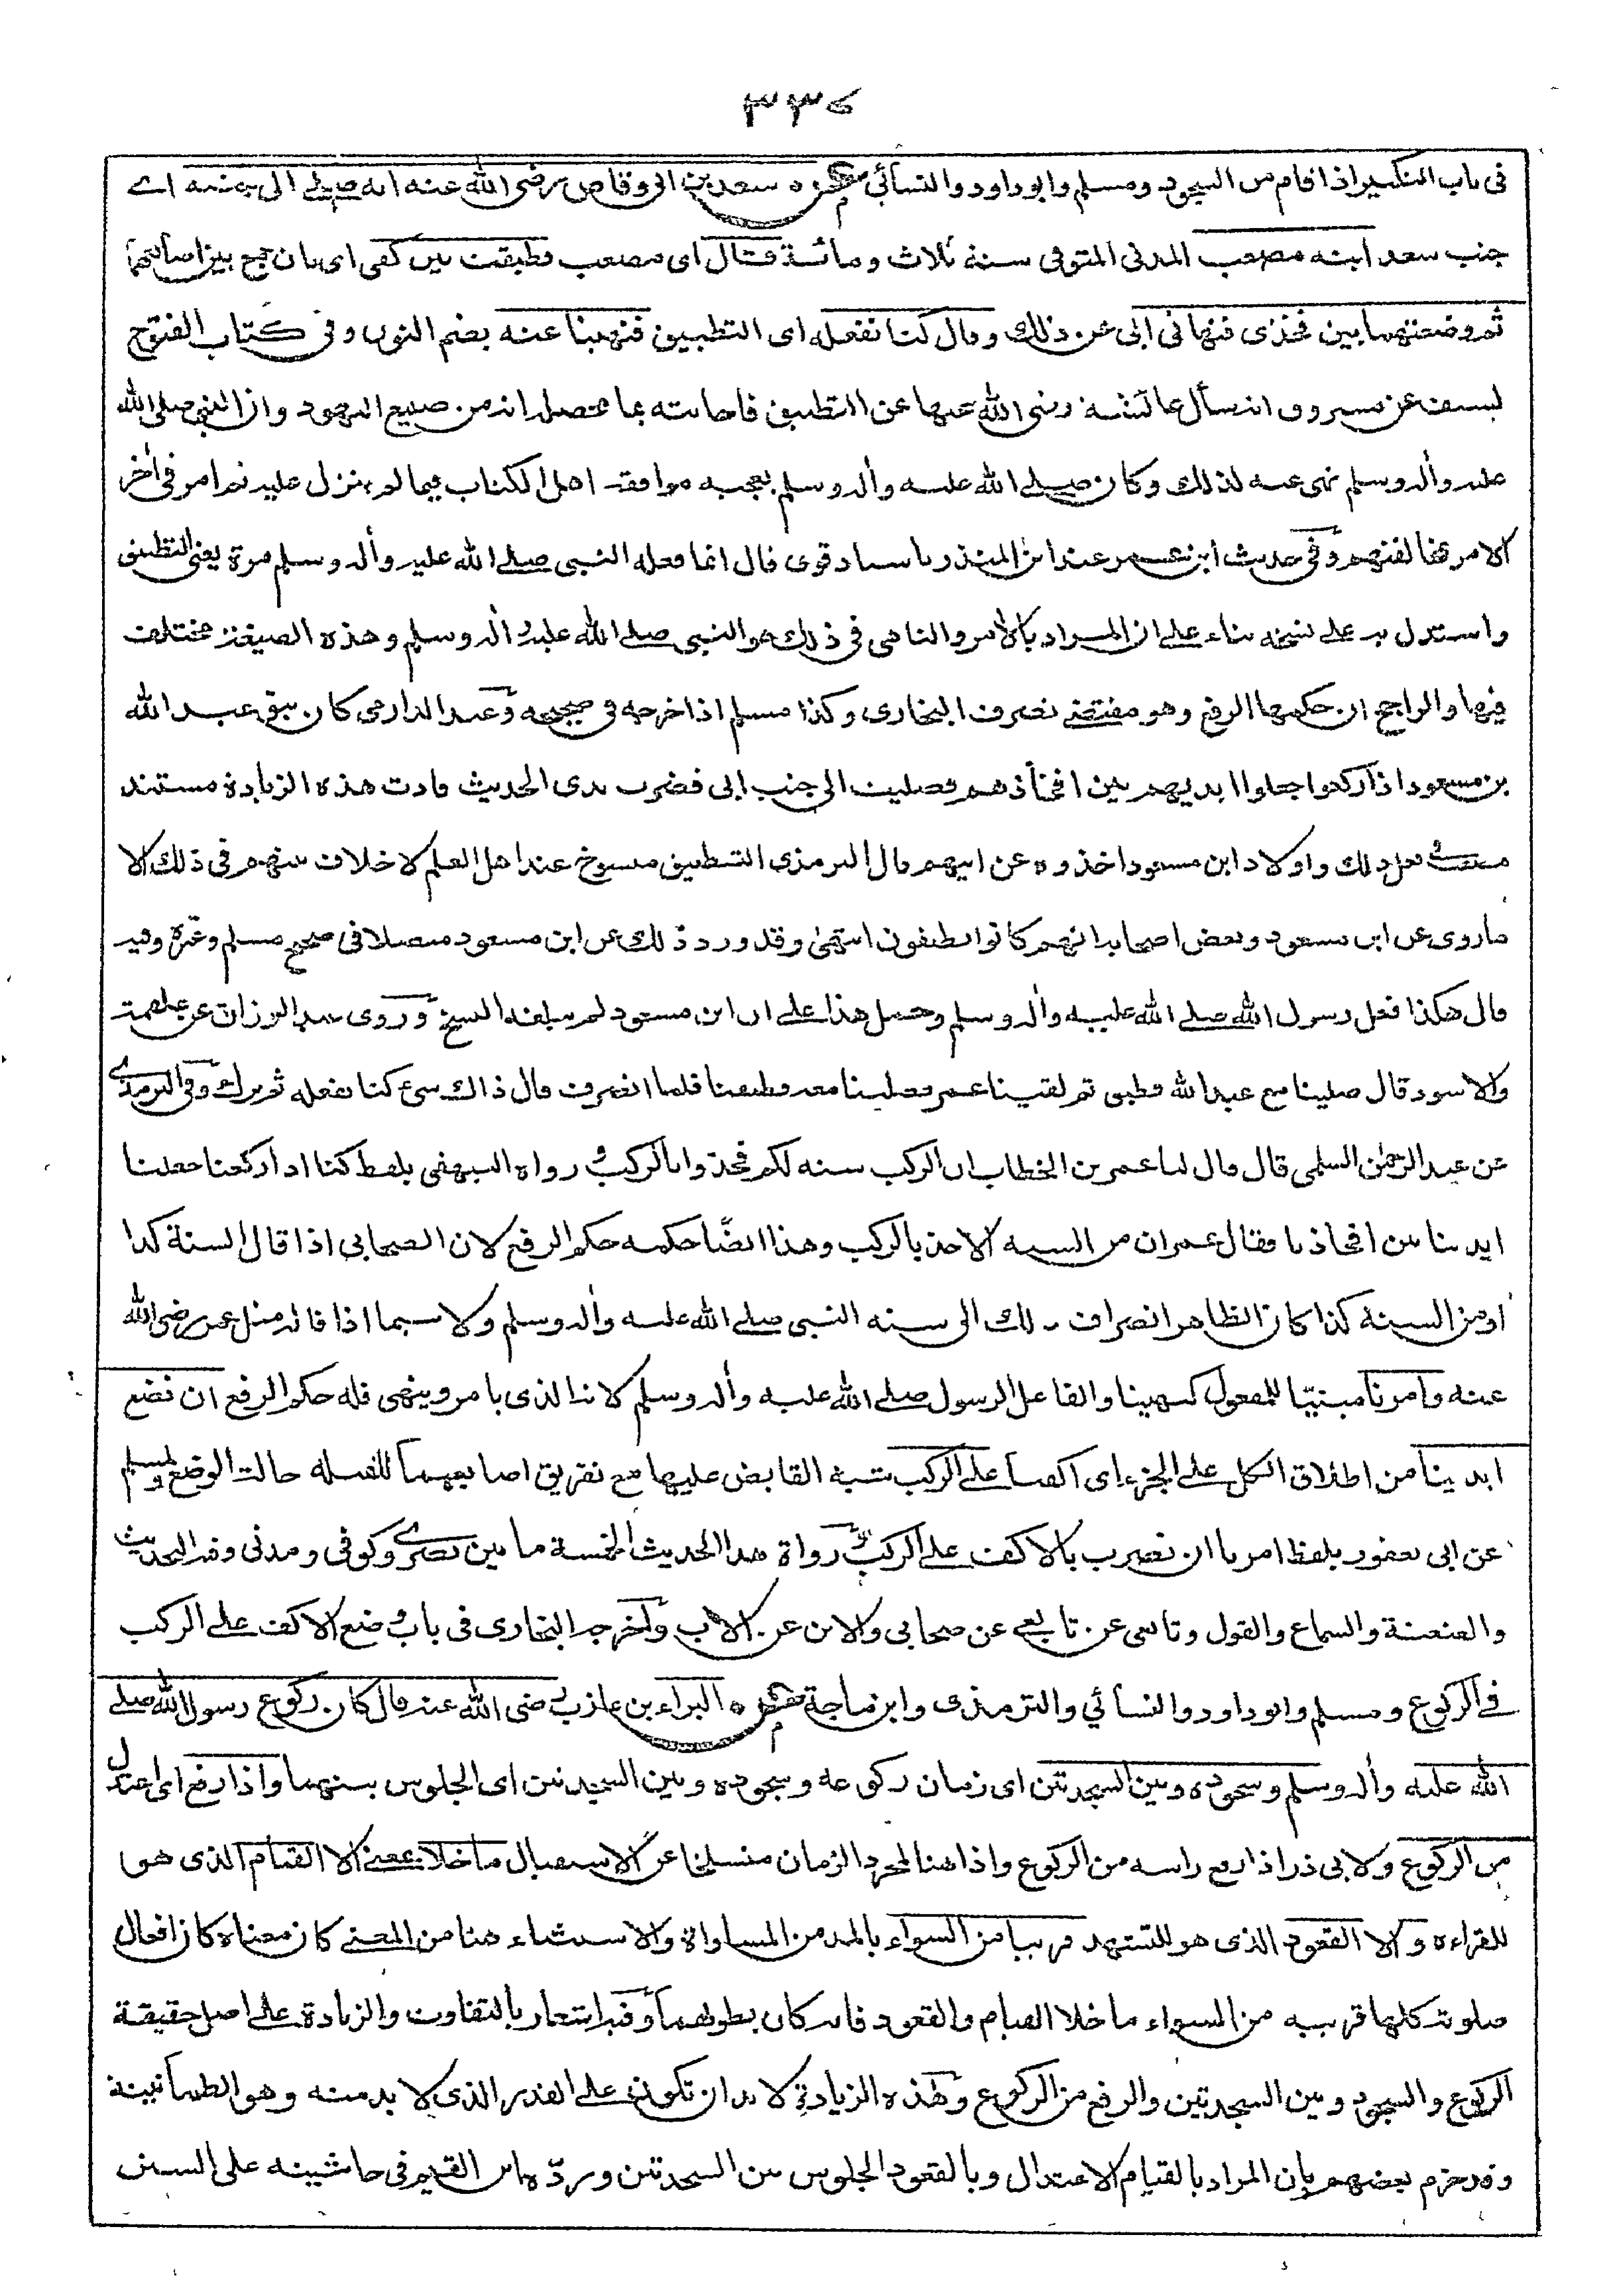 ٣٣٧
فى باب التكبير اذا قام من السجود ومسلم وابو داود والنسائي سعد بن ابى وقاص رضى الله عنه انه صلے الى جنبه اے
جنب سعد ابنه مصعب المدنى المتوفى سنة ثلاث ومائة قال اى مصعب فطبقت بين كفى اى بان جمع بين اصابعهما
ثم وضعتهما بين فخذى فنهانى ابى عن ذلك وقال كنا نفعله اى التطبيق فنهينا عنه بضم النون وفى كتاب الفتوح
لسيف عن مسروق انه سأل عائشة رضى الله عنها عن التطبيق فاجابته بما محصله انه من صنيع اليهود وان النبى صلى الله
عليه وأله وسلم نهى عنه لذلك وكان صلے الله عليه وأله وسلم يعجبه موافقة اهل الكتاب فيما لم ينزل عليه ثم امر فى أخر
الامر بمخالفتهم وفى حديث ابن عمر عند ابن المنذر باسناد قوى قال انما فعله النبى صلے الله عليه وأله وسلم مرة يعنى التطبيق
واستدل به على نسخه بناء على ان المراد بالأمر والناهى فى ذلك هو النبى صلے الله عليه وأله وسلم وهذه الصيغة مختلف
فيها والراجح ان حكمها الرفع وهو مقتضے تصرف البخارى وكذا مسلم اذ اخرجه فى صحيحه وعند الدارمى كان بنو عبد الله
بن مسعود اذا ركعوا جعلوا ايديهم بين افخاذهم فصليت الى جنب ابى فضرب يدى الحديث فادت هذه الزيادة مستند
مصعب فى فعل ذلك واولاد ابن مسعود اخذوه عن ابيهم قال الترمذى التطبيق منسوخ عند اهل العلم لا خلاف بينهم فى ذلك الا
ما روى عن ابن مسعود وبعض اصحابه انهم كانوا يطبقون انتهى وقد ورد ذلك عن ابن مسعود متصلا فى صحيح مسلم وغيره وفيه
قال هكذا فعل رسول الله صلے الله عليه وأله وسلم وحمل هذا على ان ابن مسعود لم يبلغه النسخ وروى عبد الرزاق عن علقمة
والاسود قال صلينا مع عبد الله فطبق ثم لقينا عمر فصلينا معه فطبقنا فلما انصرف قال ذاك شىء كنا نفعله ثم ترك وفى الترمذے
عن عبد الرحمٰن السلمى قال قال لنا عمر بن الخطاب ان الركب سنة لكم فخذوا بالركب و رواه البيهقى بلفظ كنا اذا ركعنا جعلنا
ايدينا بين افخاذنا فقال عمر ان من السنة الاخذ بالركب وهذا ايضًا حكمه حكم الرفع لان الصحابى اذا قال السنة كذا
او من السنة كذا كان الظاهر انصراف ذلك الى سنة النبى صلے الله عليه وأله وسلم ولا سيما اذا قاله مثل عمر رضى الله
عنه وامرنا مبنيّا للمفعول كنهينا والفاعل الرسول صلے الله عليه وأله وسلم لانه الذى يامر وينهى فله حكم الرفع ان نضع
ايدينا من اطلاق الكل على الجزء اى اكفنا على الركب شبه القابض عليها مع تفريق اصابعهما للقبلة حالة الوضع ولمسلم
عن ابى يعفور بلفظ امرنا ان نضرب بالاكف على الركب و رواة هذا الحديث الخمسة ما بين بصرے وكوفى ومدنى وفيه التحديث
والعنعنة والسماع والقول وتابعى عن تابعے عن صحابى والابن عن الاب واخرجه البخارى فى باب وضع الاكف على الركب
فے الركوع ومسلم وابو داود والنسائي والترمذى وابن ماجة البراء بن عازب رضى الله عنه قال كان ركوع رسول الله صلے
الله عليه وأله وسلم وسجوده وبين السجدتين اى زمان ركوعه وسجوده وبين السجدتين اى الجلوس بينهما واذا رفع اى اعتدل
من الركوع ولابى ذر اذا رفع راسه من الركوع واذا هنا لمجرد الزمان منسلخا عن الاستقبال ما خلا بمعنى الا القيام الذى هو
للقراءة والا القعود الذى هو للتشهد قريبا من السواء بالمد من المساواة والاستثناء هنا من المعنى كان معناه كان افعال
صلوته كلها قريبة من السواء ما خلا القيام والقعود فانه كان يطولهما وفيه اشعار بالتفاوت والزيادة على اصل حقيقة
الركوع والسجود وبين السجدتين والرفع من الركوع وهذه الزيادة لا بد ان تكون على القدر الذى لا بد منه وهو الطمأنينة
وقد جزم بعضهم بان المراد بالقيام الاعتدال وبالقعود الجلوس بين السجدتين وردّه ابن القيم فى حاشيته على السنن